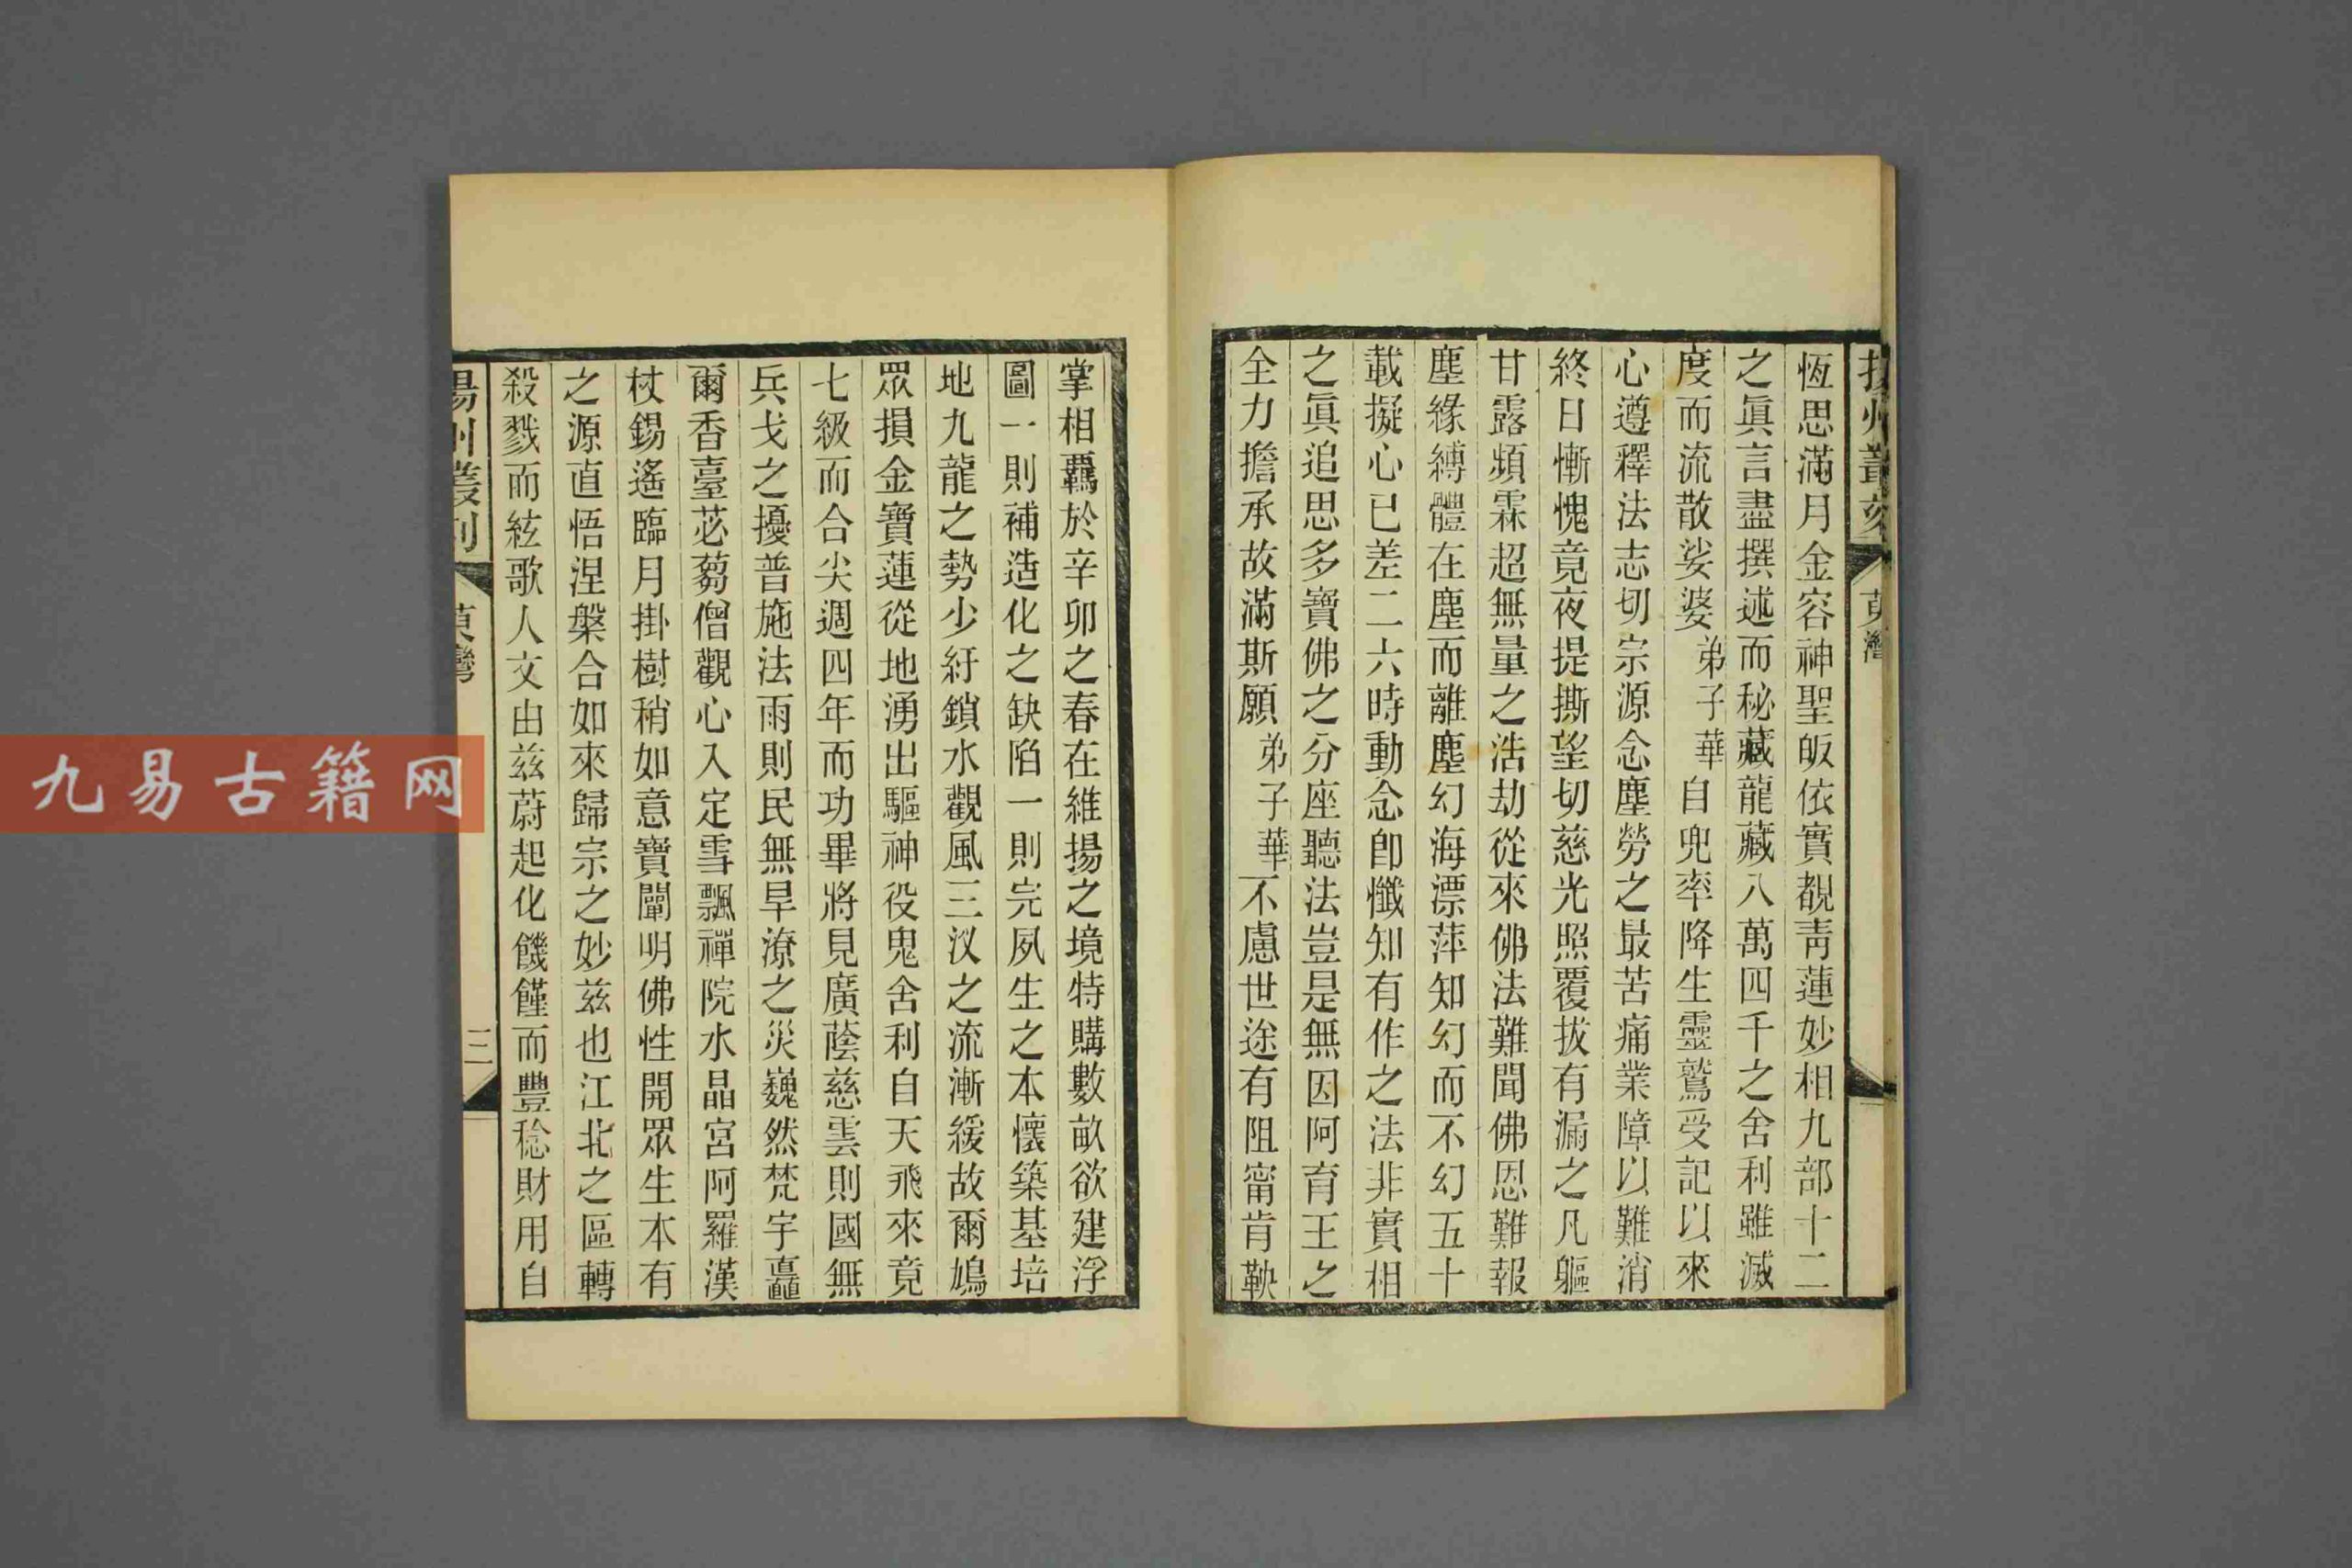 恆思滿月金容神聖皈依實覩靑蓮妙相九部十二
之眞言盡撰述而秘藏龍藏八萬四千之舍利雖滅
度而流散娑婆弟子華自兜率降生靈鷲受記以來
心遵釋法志切宗源念塵勞之最苦痛業障以難消
終日慚愧竟夜提撕望切慈光照覆拔有漏之凡軀
甘露頻霖超無量之浩劫從來佛法難聞佛恩難報
塵緣縛體在塵而離塵幻海漂萍知幻而不幻五十
載擬心已差二六時動念卽懺知有作之法非實相
之眞追思多寶佛之分座聽法豈是無因阿育王之
全力擔承故滿斯願弟子華不慮世途有阻甯肯鞅
掌相羈於辛卯之春在維揚之境特購數畝欲建浮
圖一則補造化之缺陷一則完夙生之本懷築基培
地九龍之勢少紆鎖水觀風三汊之流漸緩故爾鳩
眾損金寶蓮從地湧出驅神役鬼舍利自天飛來竟
七級而合尖週四年而功畢將見廣蔭慈雲則國無
兵戈之擾普施法雨則民無旱潦之災巍然梵宇矗
爾香臺苾蒭僧觀心入定雪飄禪院水晶宮阿羅漢
杖錫遙臨月掛樹稍如意寶闡明佛性開眾生本有
之源直悟涅槃合如來歸宗之妙茲也江北之區轉
殺戮而絃歌人文由茲蔚起化饑饉而豐稔財用自
揚州叢刻
三
九易古籍网